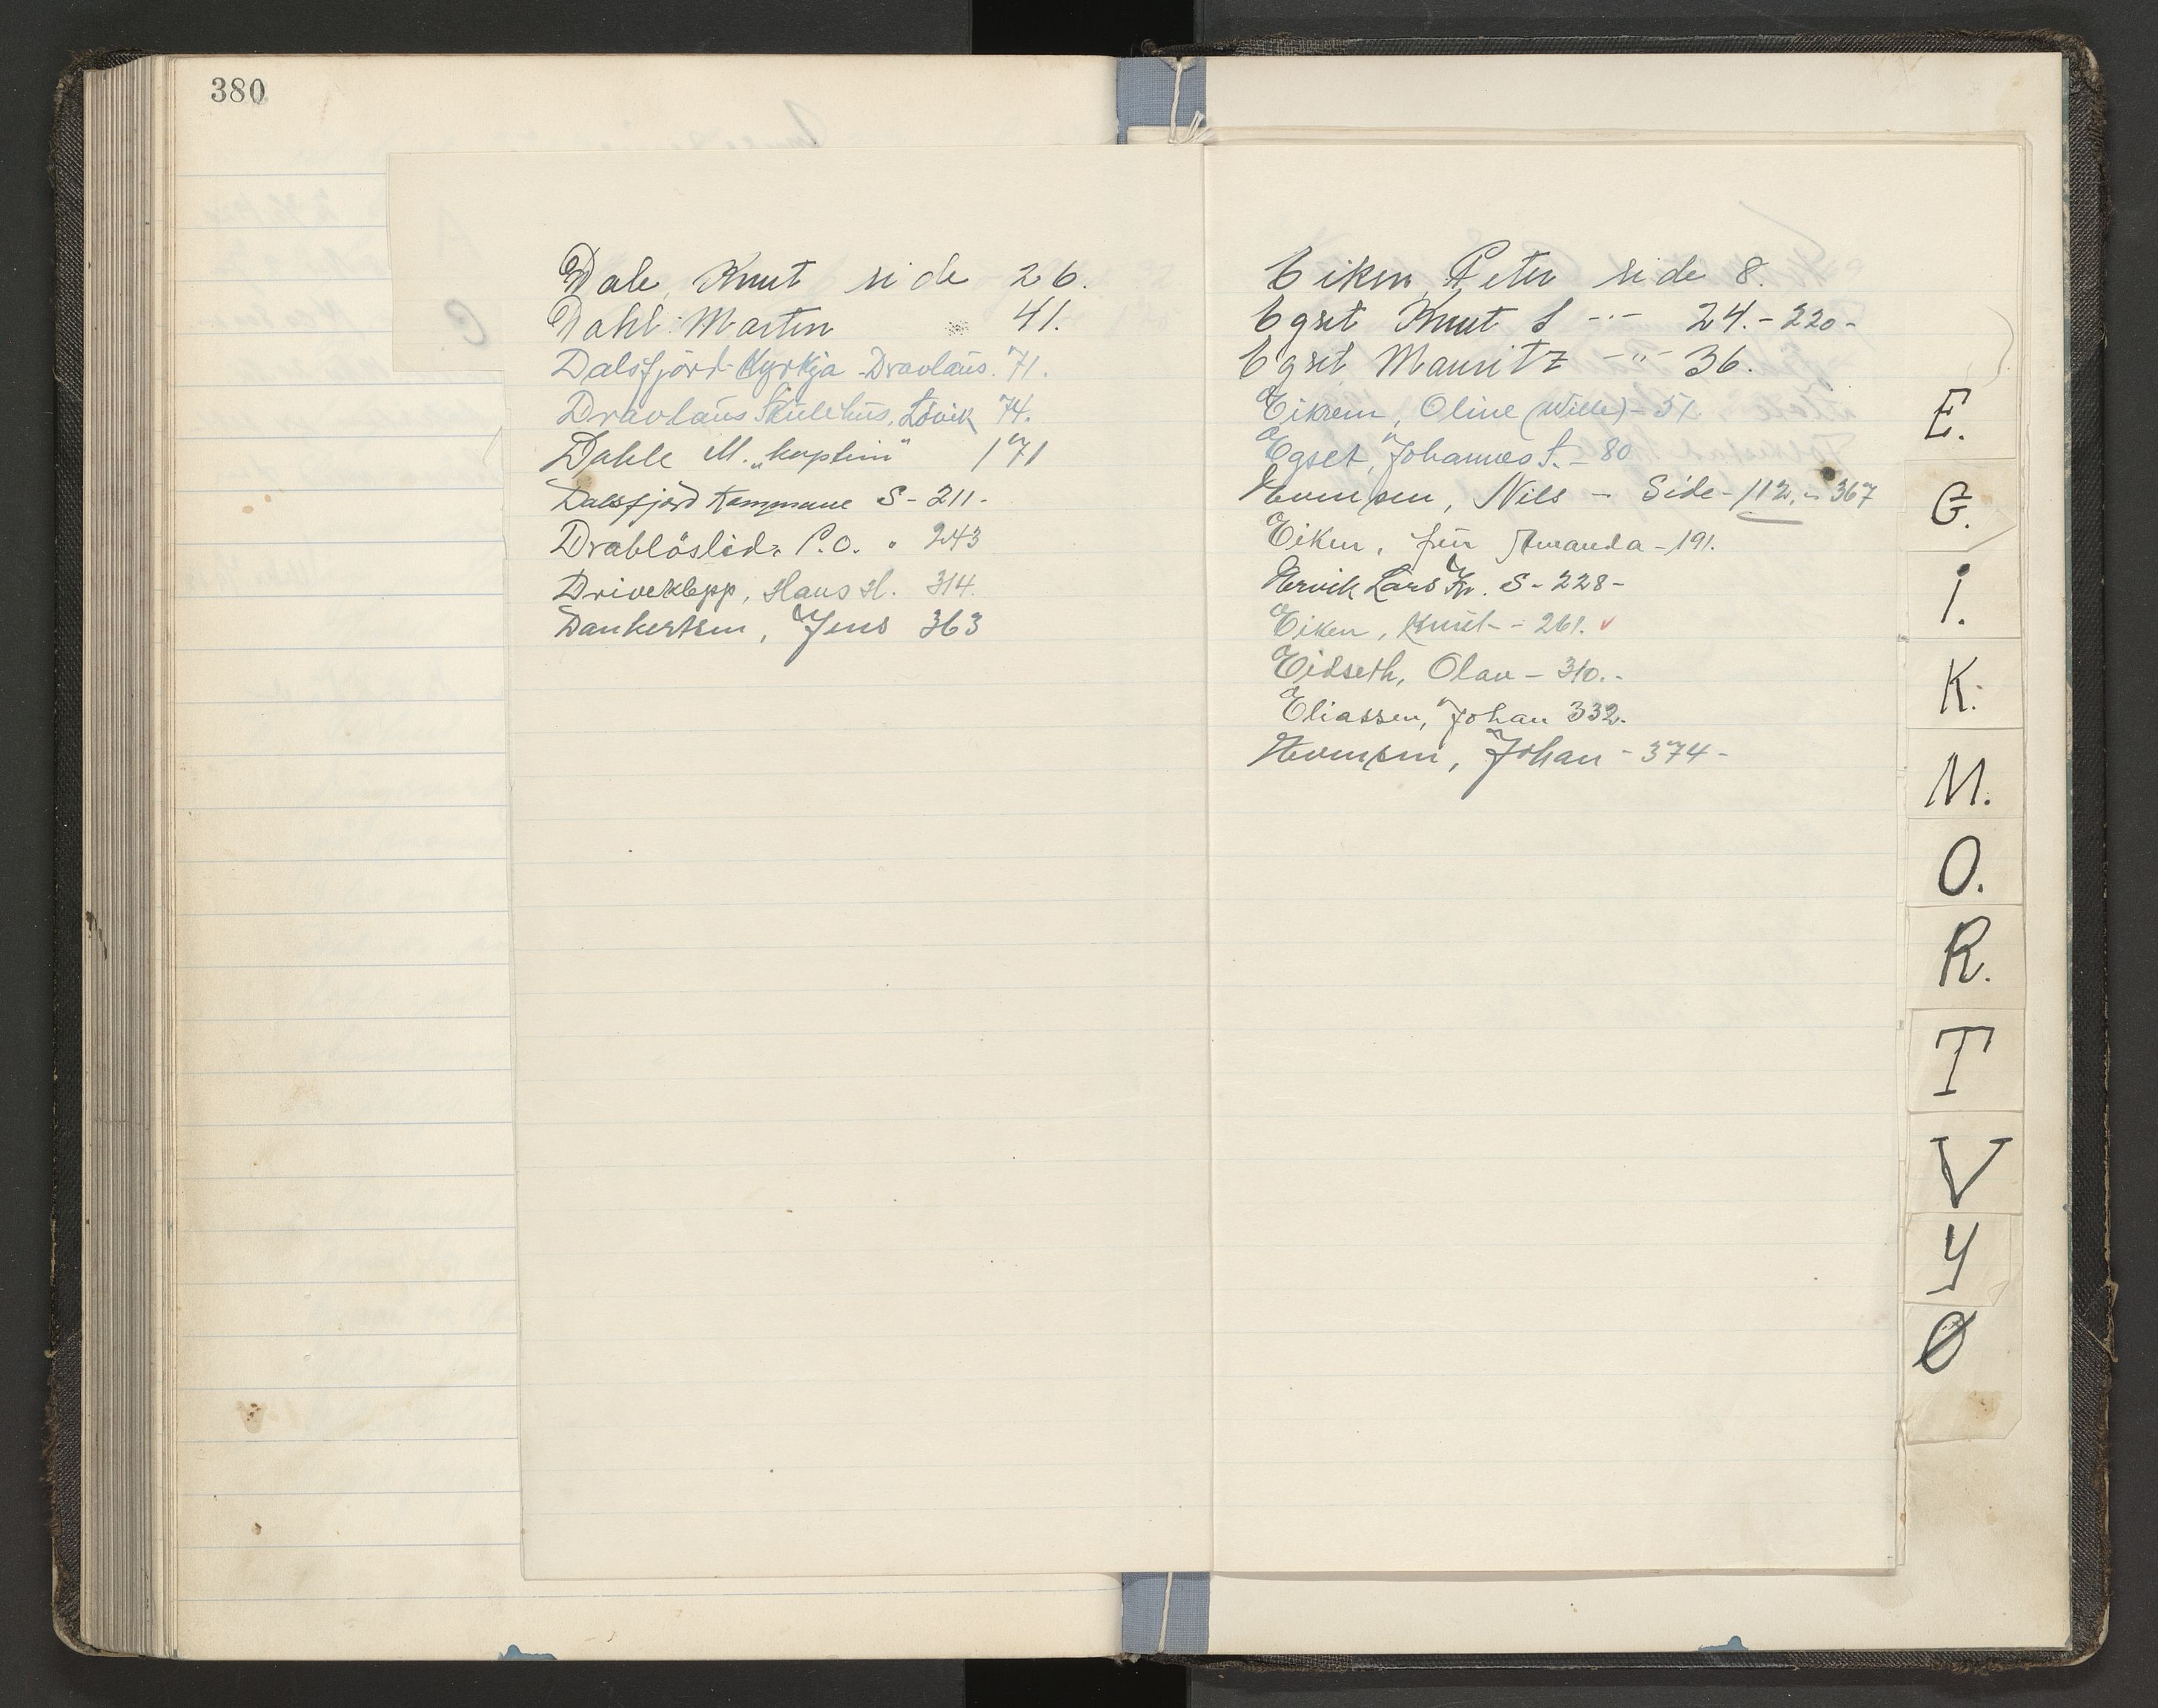 380
Dale, Knut side 26.
Dahl Martin 41.
Dalsfjord-Kyrkja-Dravlaus. 71.
Dravlaus Skulehus, Lövik 74.
Dahle M. 171
Dalsfjord Kommune S-211-
Dräblöslid. P.O. " 243
Driveklepp, Hans H. 314.
Dankertsen, Jens 363
Eiken, Peter side 8.
Egset Knut S -"- 24.-220-
Egset Mauritz -"- 36.
Eikrem, Oline (Wille)- 51
Egset, Johannes S. - 80
Evensen, Nils - Side-112.-367
Eiken, fru Amanda-191.
Ervik Lars Kr. S-228-
Eiken, Knut - 261. v
Eidseth, Olav - 310.-
Eliassen, Johan 332-
Evensen, Johan - 374-
E.
G.
I.
K.
M.
O.
R.
T
V
Y
Ø
C.
A